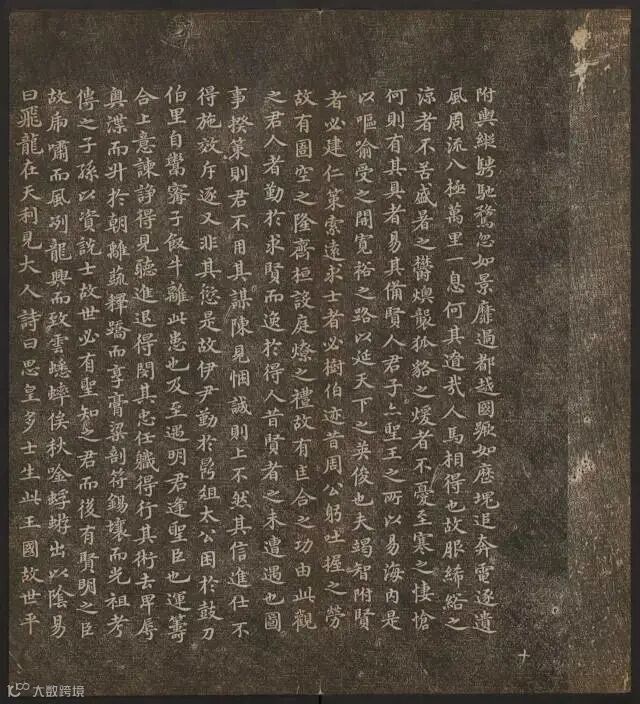 附輿縱騁馳騖忽如景靡過都越國蹶如歷塊追奔電逐遺
風周流八極萬里一息何其遼哉人馬相得也故服絺綌之
涼者不苦盛暑之鬱燠襲狐貉之煖者不憂至寒之悽愴
何則有其具者易其備賢人君子亦聖王之所以易海內是
以嘔喻受之開寬裕之路以延天下之英俊也夫竭智附賢
者必建仁策索遠求士者必樹伯迹昔周公躬吐握之勞
故有圄空之隆齊桓設庭燎之禮故有匡合之功由此觀
之君人者勤於求賢而逸於得人昔賢者之未遭遇也圖
事揆策則君不用其謀陳見悃誠則上不然其信進仕不
得施效斥逐又非其愆是故伊尹勤於鼎俎太公困於鼓刀
伯里自鬻甯子飯牛離此患也及至遇明君逢聖臣也運籌
合上意諫諍得見聽進退得関其忠任職得行其術去卑辱
奧渫而升於朝離蔬釋蹻而享膏粱剖符錫壤而光祖考
傳之子孫以資說士故世必有聖知之君而後有賢明之臣
故虎嘯而風冽龍興而致雲蟋蟀俟秋唫蜉蝣出以陰易
曰飛龍在天利見大人詩曰思皇多士生此王國故世平
十
大数跨境